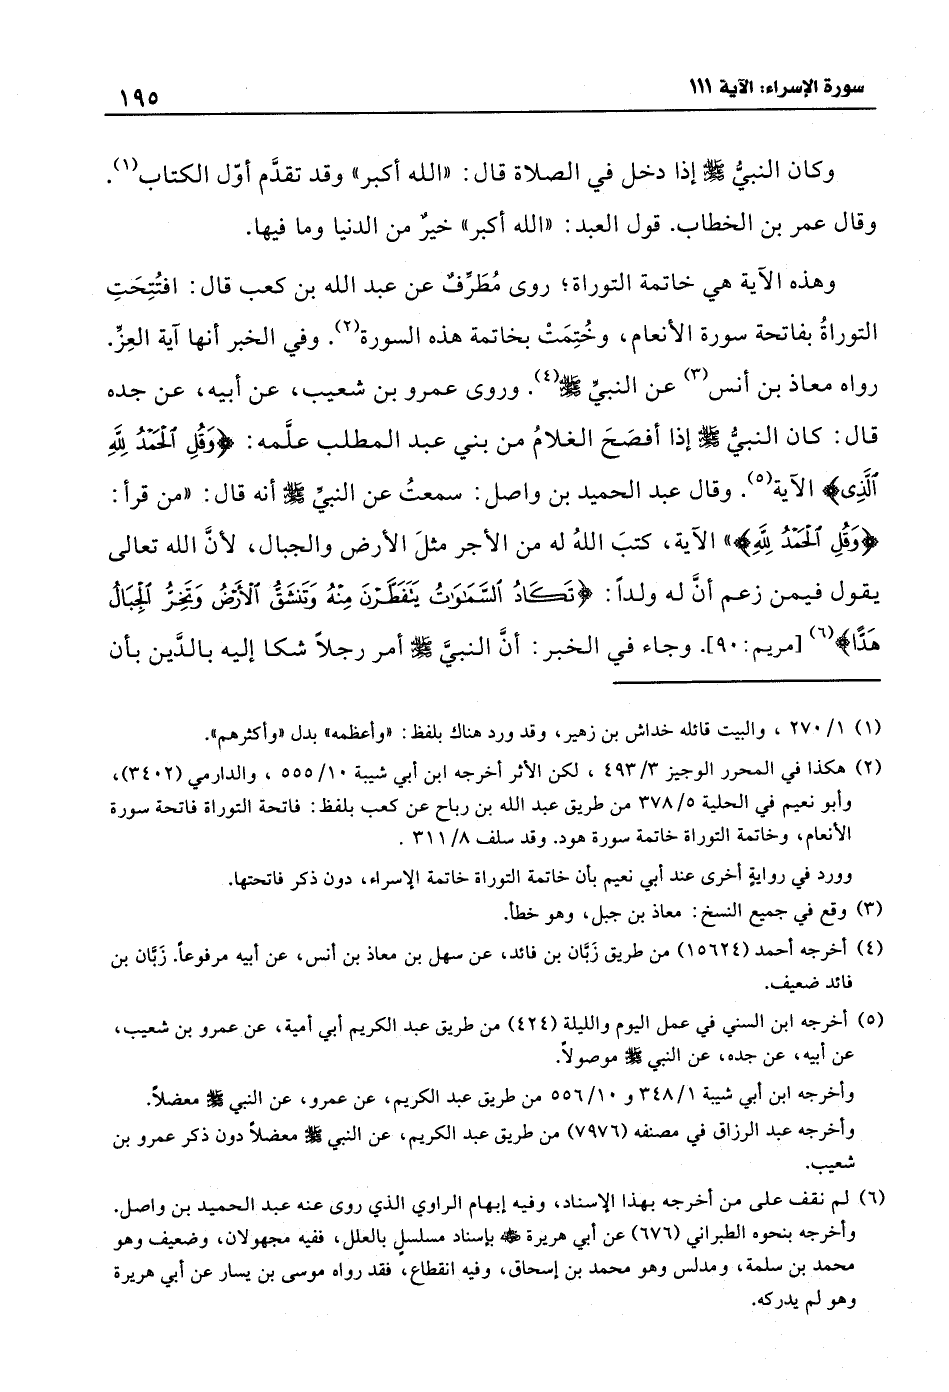 سورة الإسراء: الآية ١١١
١٩٥
وكان النبيُّ ﷺ إذا دخل في الصلاة قال: «الله أكبر» وقد تقدَّم أوّل الكتاب(١).
وقال عمر بن الخطاب. قول العبد: «الله أكبر» خيرٌ من الدنيا وما فيها.
وهذه الآية هي خاتمة التوراة؛ روى مُطَرِّفٌ عن عبد الله بن كعب قال: افتُتِحَتِ
التوراةُ بفاتحة سورة الأنعام، وخُتِمَتْ بخاتمة هذه السورة(٢). وفي الخبر أنها آية العِزِّ.
رواه معاذ بن أنس(٣) عن النبيِّ ﷺ(٤). وروى عمرو بن شعيب، عن أبيه، عن جده
قال: كان النبيُّ ﷺ إذا أفصَحَ الغلامُ من بني عبد المطلب علَّمه: ﴿وَقُلِ ٱلْحَمْدُ لِلَّهِ
ٱلَّذِى﴾ الآية(٥). وقال عبد الحميد بن واصل: سمعتُ عن النبيِّ ﷺ أنه قال: «من قرأ:
﴿وَقُلِ ٱلْحَمْدُ لِلَّهِ﴾» الآية، كتبَ اللهُ له من الأجر مثلَ الأرض والجبال، لأنَّ الله تعالى
يقول فيمن زعم أنَّ له ولداً: ﴿تَكَادُ ٱلسَّمَٰوَٰتُ يَنفَطِرْنَ مِنْهُ وَتَنشَقُّ ٱلْأَرْضُ وَتَخِرُّ ٱلْجِبَالُ
هَدًّا﴾(٦) [مريم: ٩٠]. وجاء في الخبر: أنَّ النبيَّ ﷺ أمر رجلاً شكا إليه بالدَّين بأن
(١) ٢٧٠/١ ، والبيت قائله خداش بن زهير، وقد ورد هناك بلفظ: «وأعظمه» بدل «وأكثرهم».
(٢) هكذا في المحرر الوجيز ٤٩٣/٣ ، لكن الأثر أخرجه ابن أبي شيبة ٥٥٥/١٠ ، والدارمي (٣٤٠٢)،
وأبو نعيم في الحلية ٣٧٨/٥ من طريق عبد الله بن رباح عن كعب بلفظ: فاتحة التوراة فاتحة سورة
الأنعام، وخاتمة التوراة خاتمة سورة هود. وقد سلف ٣١١/٨ .
وورد في روايةٍ أخرى عند أبي نعيم بأن خاتمة التوراة خاتمة الإسراء، دون ذكر فاتحتها.
(٣) وقع في جميع النسخ: معاذ بن جبل، وهو خطأ.
(٤) أخرجه أحمد (١٥٦٢٤) من طريق زَبَّان بن فائد، عن سهل بن معاذ بن أنس، عن أبيه مرفوعاً. زَبَّان بن
فائد ضعيف.
(٥) أخرجه ابن السني في عمل اليوم والليلة (٤٢٤) من طريق عبد الكريم أبي أمية، عن عمرو بن شعيب،
عن أبيه، عن جده، عن النبي ﷺ موصولاً.
وأخرجه ابن أبي شيبة ٣٤٨/١ و ٥٥٦/١٠ من طريق عبد الكريم، عن عمرو، عن النبي ﷺ معضلاً.
وأخرجه عبد الرزاق في مصنفه (٧٩٧٦) من طريق عبد الكريم، عن النبي ﷺ معضلاً دون ذكر عمرو بن
شعيب.
(٦) لم نقف على من أخرجه بهذا الإسناد، وفيه إبهام الراوي الذي روى عنه عبد الحميد بن واصل.
وأخرجه بنحوه الطبراني (٦٧٦) عن أبي هريرة ﷺ بإسناد مسلسلٍ بالعلل، ففيه مجهولان، وضعيف وهو
محمد بن سلمة، ومدلس وهو محمد بن إسحاق، وفيه انقطاع، فقد رواه موسى بن يسار عن أبي هريرة
وهو لم يدركه.